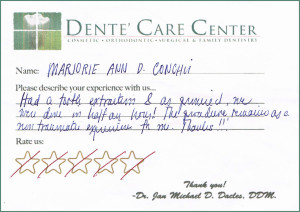 DENTE' CARE CENTER
COSMETIC • ORTHODONTIC • SURGICAL & FAMILY DENTISTRY
Name: MARJORIE ANN D. CONCHU
Please describe your experience with us...
Had a tooth extraction & as promised, we
were done in half an hour! The procedure remains as a
non traumatic experience for me. Thanks!!!
Rate us:
Thank you!
-Dr. Jan Michael D. Dacles, DDM.